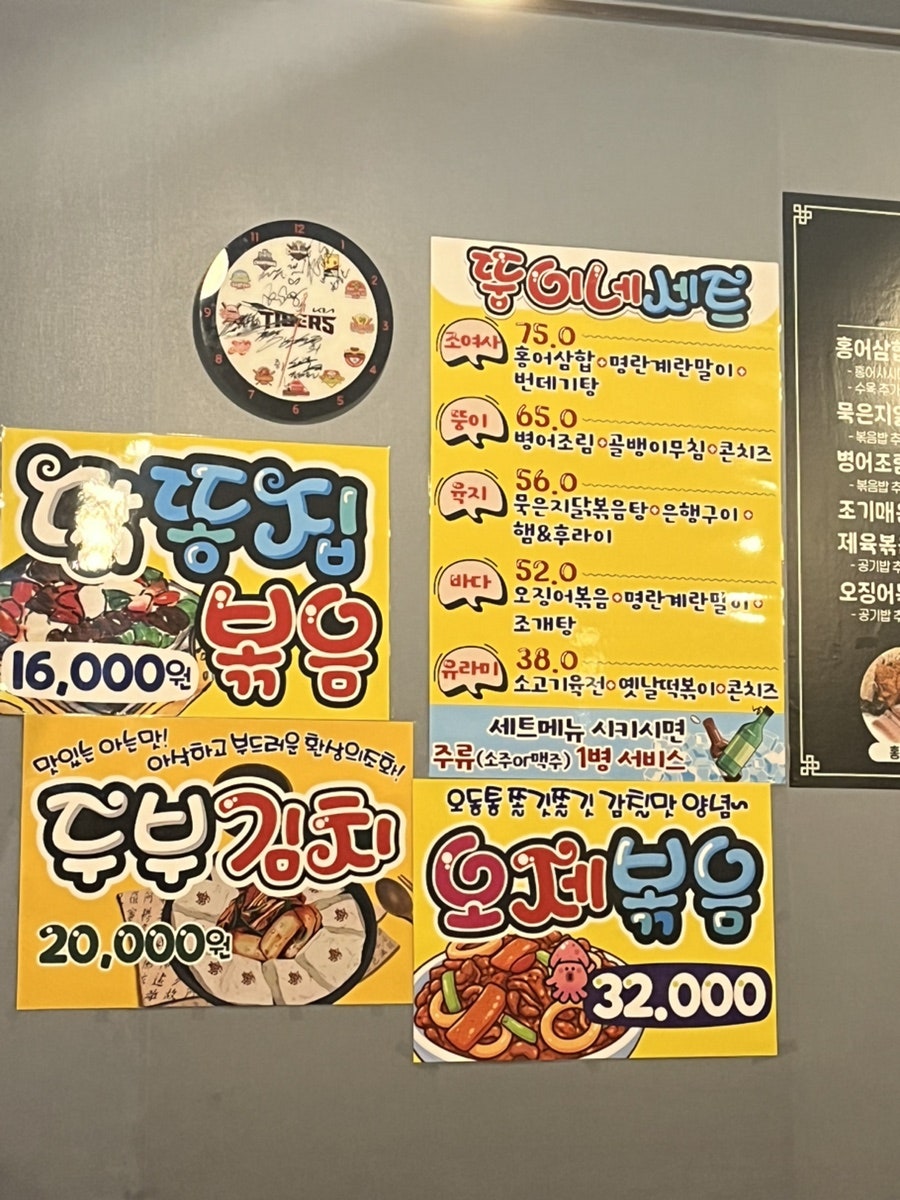 12
1
2
3
5
6
7
8
9
11
KIA
TIGERS
뚱이네세트
조여사
75.0
홍어삼합+명란계란말이+
번데기탕
뚱이
65.0
병어조림+골뱅이무침+콘치즈
육지
56.0
묵은지닭볶음탕+은행구이+
햄&후라이
바다
52.0
오징어볶음+명란계란말이+
조개탕
유라미
38.0
소고기육전+옛날떡볶이+콘치즈
세트메뉴 시키시면
주류(소주or맥주) 1병 서비스
닭똥집
볶음
16,000원
맛있는 아는맛!
아삭하고 부드러운 환상의조화!
두부김치
20,000원
오동통 쫄깃쫄깃 감칠맛 양념~
오제볶음
32.000
홍어삼합
- 홍어사시미
- 수육 추가
묵은지
- 볶음밥 추
병어조림
- 볶음밥 추
조기매운
제육볶음
- 공기밥 추
오징어볶
- 공기밥 추